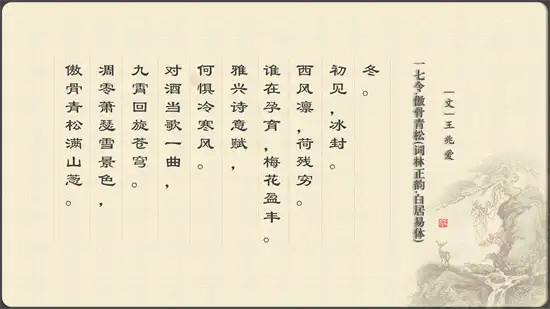 一七令·傲骨青松(词林正韵·白居易体)
一文一王兆爱
冬。
初见,冰封。
西风凛,荷残穷。
谁在孕育,梅花盈丰。
雅兴诗意赋,
何惧冷寒风。
对酒当歌一曲,
九霄回旋苍穹。
凋零萧瑟雪景色,
傲骨青松满山葱。